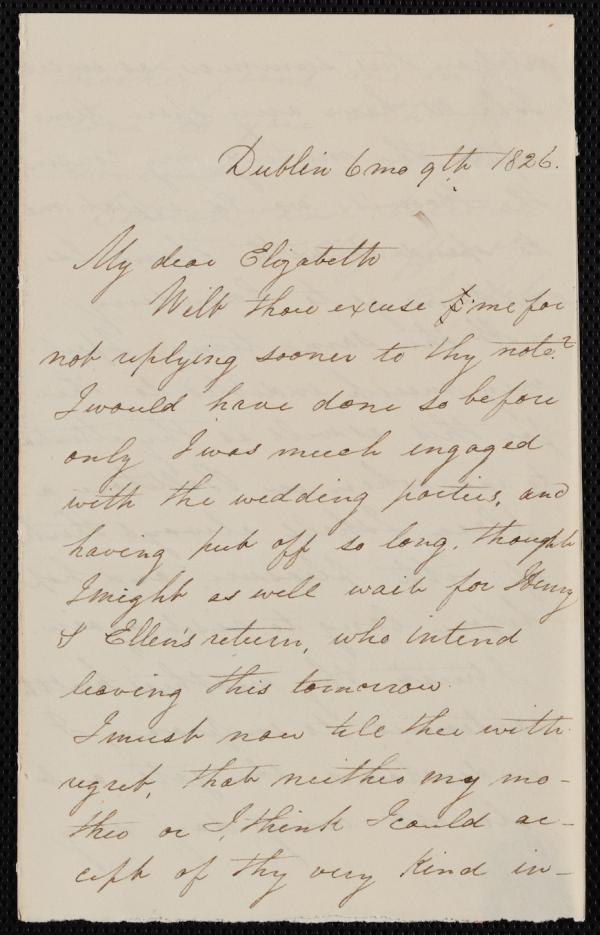 Dublin 6 mo 9th 1826.
My dear Elizabeth
Wilt thou excuse me for
not replying sooner to thy note?
I would have done so before
only I was much engaged
with the wedding parties, and
having put off so long, thought
I might as well wait for Henry
& Ellen's return, who intend
leaving this tomorrow.
I must now tell thee with
regret, that neither my mo-
ther or I, think I could ac-
cept of thy very kind in-